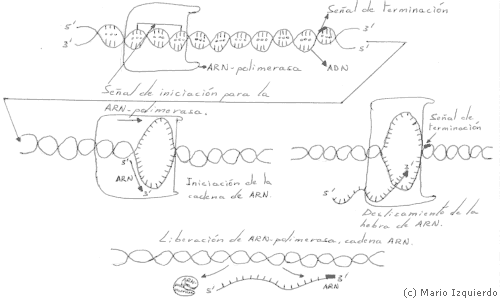 Señal de terminación
5' 3'
3' 5'
ARN-polimerasa
ADN
Señal de iniciación para la
ARN-polimerasa.
Señal de
terminación
3'
ARN
3'
Iniciación de la
cadena de ARN.
3'
5'
Deslizamiento de la
hebra de ARN.
Liberación de ARN-polimerasa, cadena ARN.
5' 3'
ARN
(c) Mario Izquierdo